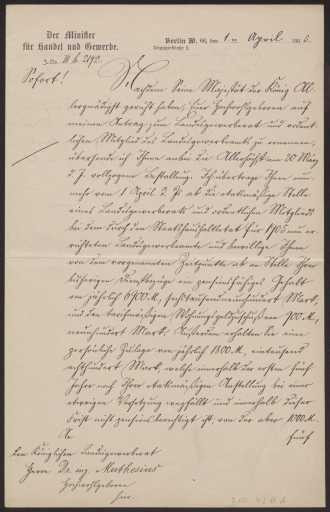 Der Minister
für Handel und Gewerbe.
Berlin W. 66, den 1 ten April 190
J.-No. III b. 2192.
Leipzigerstraße 2.
Sofort!
Nachdem Seine Majestät der König Al-
lergnädigst geruht haben, Euer Hochwohlgeboren auf
meinen Antrag zum Landesgewerberat und ordent-
lichen Mitglied des Landesgewerbeamts zu ernennen,
übersende ich Ihnen anbei die Allerhöchst am 20 März
d. J. vollzogene Bestallung. Ich übertrage Ihnen nun-
mehr vom 1 April d. J. ab die etatsmäßige Stelle
eines Landesgewerberats und ordentlichen Mitglieds
bei dem durch den Staatshaushaltsetat für 1905 neu er-
richteten Landesgewerbeamte und bewillige Ihnen
von dem vorgenannten Zeitpunkte ab an Stelle Ihrer
bisherigen Dienstbezüge ein pensionsfähiges Gehalt
von jährlich 6900 M, sechstausendneunhundert Mark,
und den tarifmäßigen Wohnungsgeldzuschuß von 900 M,
neunhundert Mark. Außerdem erhalten Sie eine
persönliche Zulage von jährlich 1800 M, eintausend
achthundert Mark, welche innerhalb der ersten fünf
Jahre nach Ihrer etatsmäßigen Anstellung bei einer
etwaigen Versetzung wegfällt und innerhalb dieser
Frist nicht pensionsberechtigt ist, von der aber 1000 M.
fünf
An
den Königlichen Landesgewerberat
Herrn Dr. ing. Muthesius
Hochwohlgeboren
hier